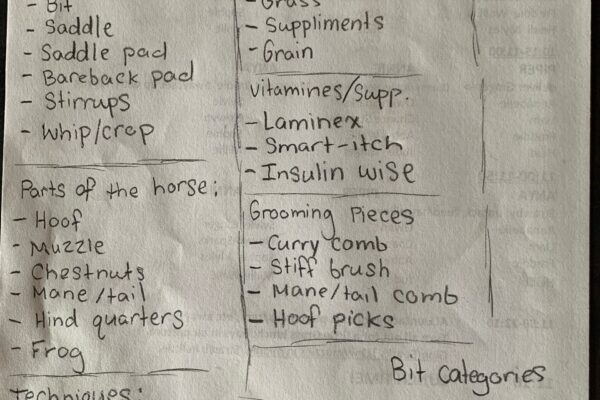 - Bit
- Saddle
- Saddle pad
- Bareback pad
- Stirrups
- Whip/crop
Parts of the horse:
- Hoof
- Muzzle
- Chestnuts
- Mane/tail
- Hind quarters
- Frog
Techniques:
- Grass
- Suppliments
- Grain
Vitamines/Supp.
- Laminex
- Smart-itch
- Insulin wise
Grooming Pieces
- Curry comb
- Stiff brush
- Mane/tail comb
- Hoof picks
Bit categories